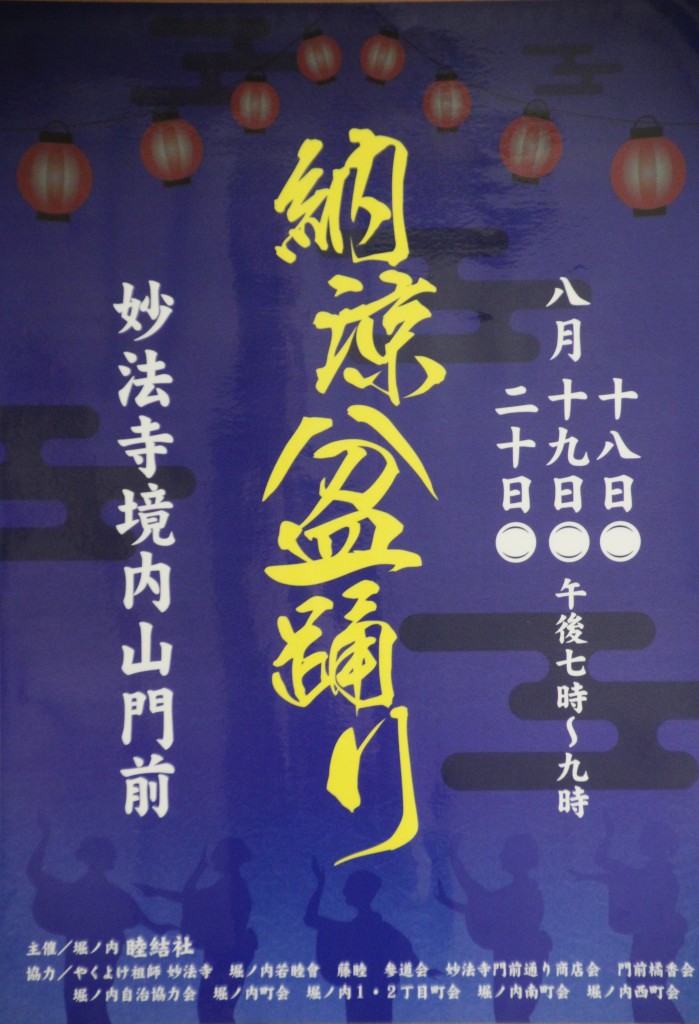 納涼盆踊り
八月
十八日
十九日
二十日
午後七時~九時
妙法寺境内山門前
主催/堀ノ内 睦結社
協力/やくよけ祖師 妙法寺 堀ノ内若睦會 藤睦 参道会 妙法寺門前通り商店会 門前橘香会
堀ノ内自治協力会 堀ノ内町会 堀ノ内1・2丁目町会 堀ノ内南町会 堀ノ内西町会